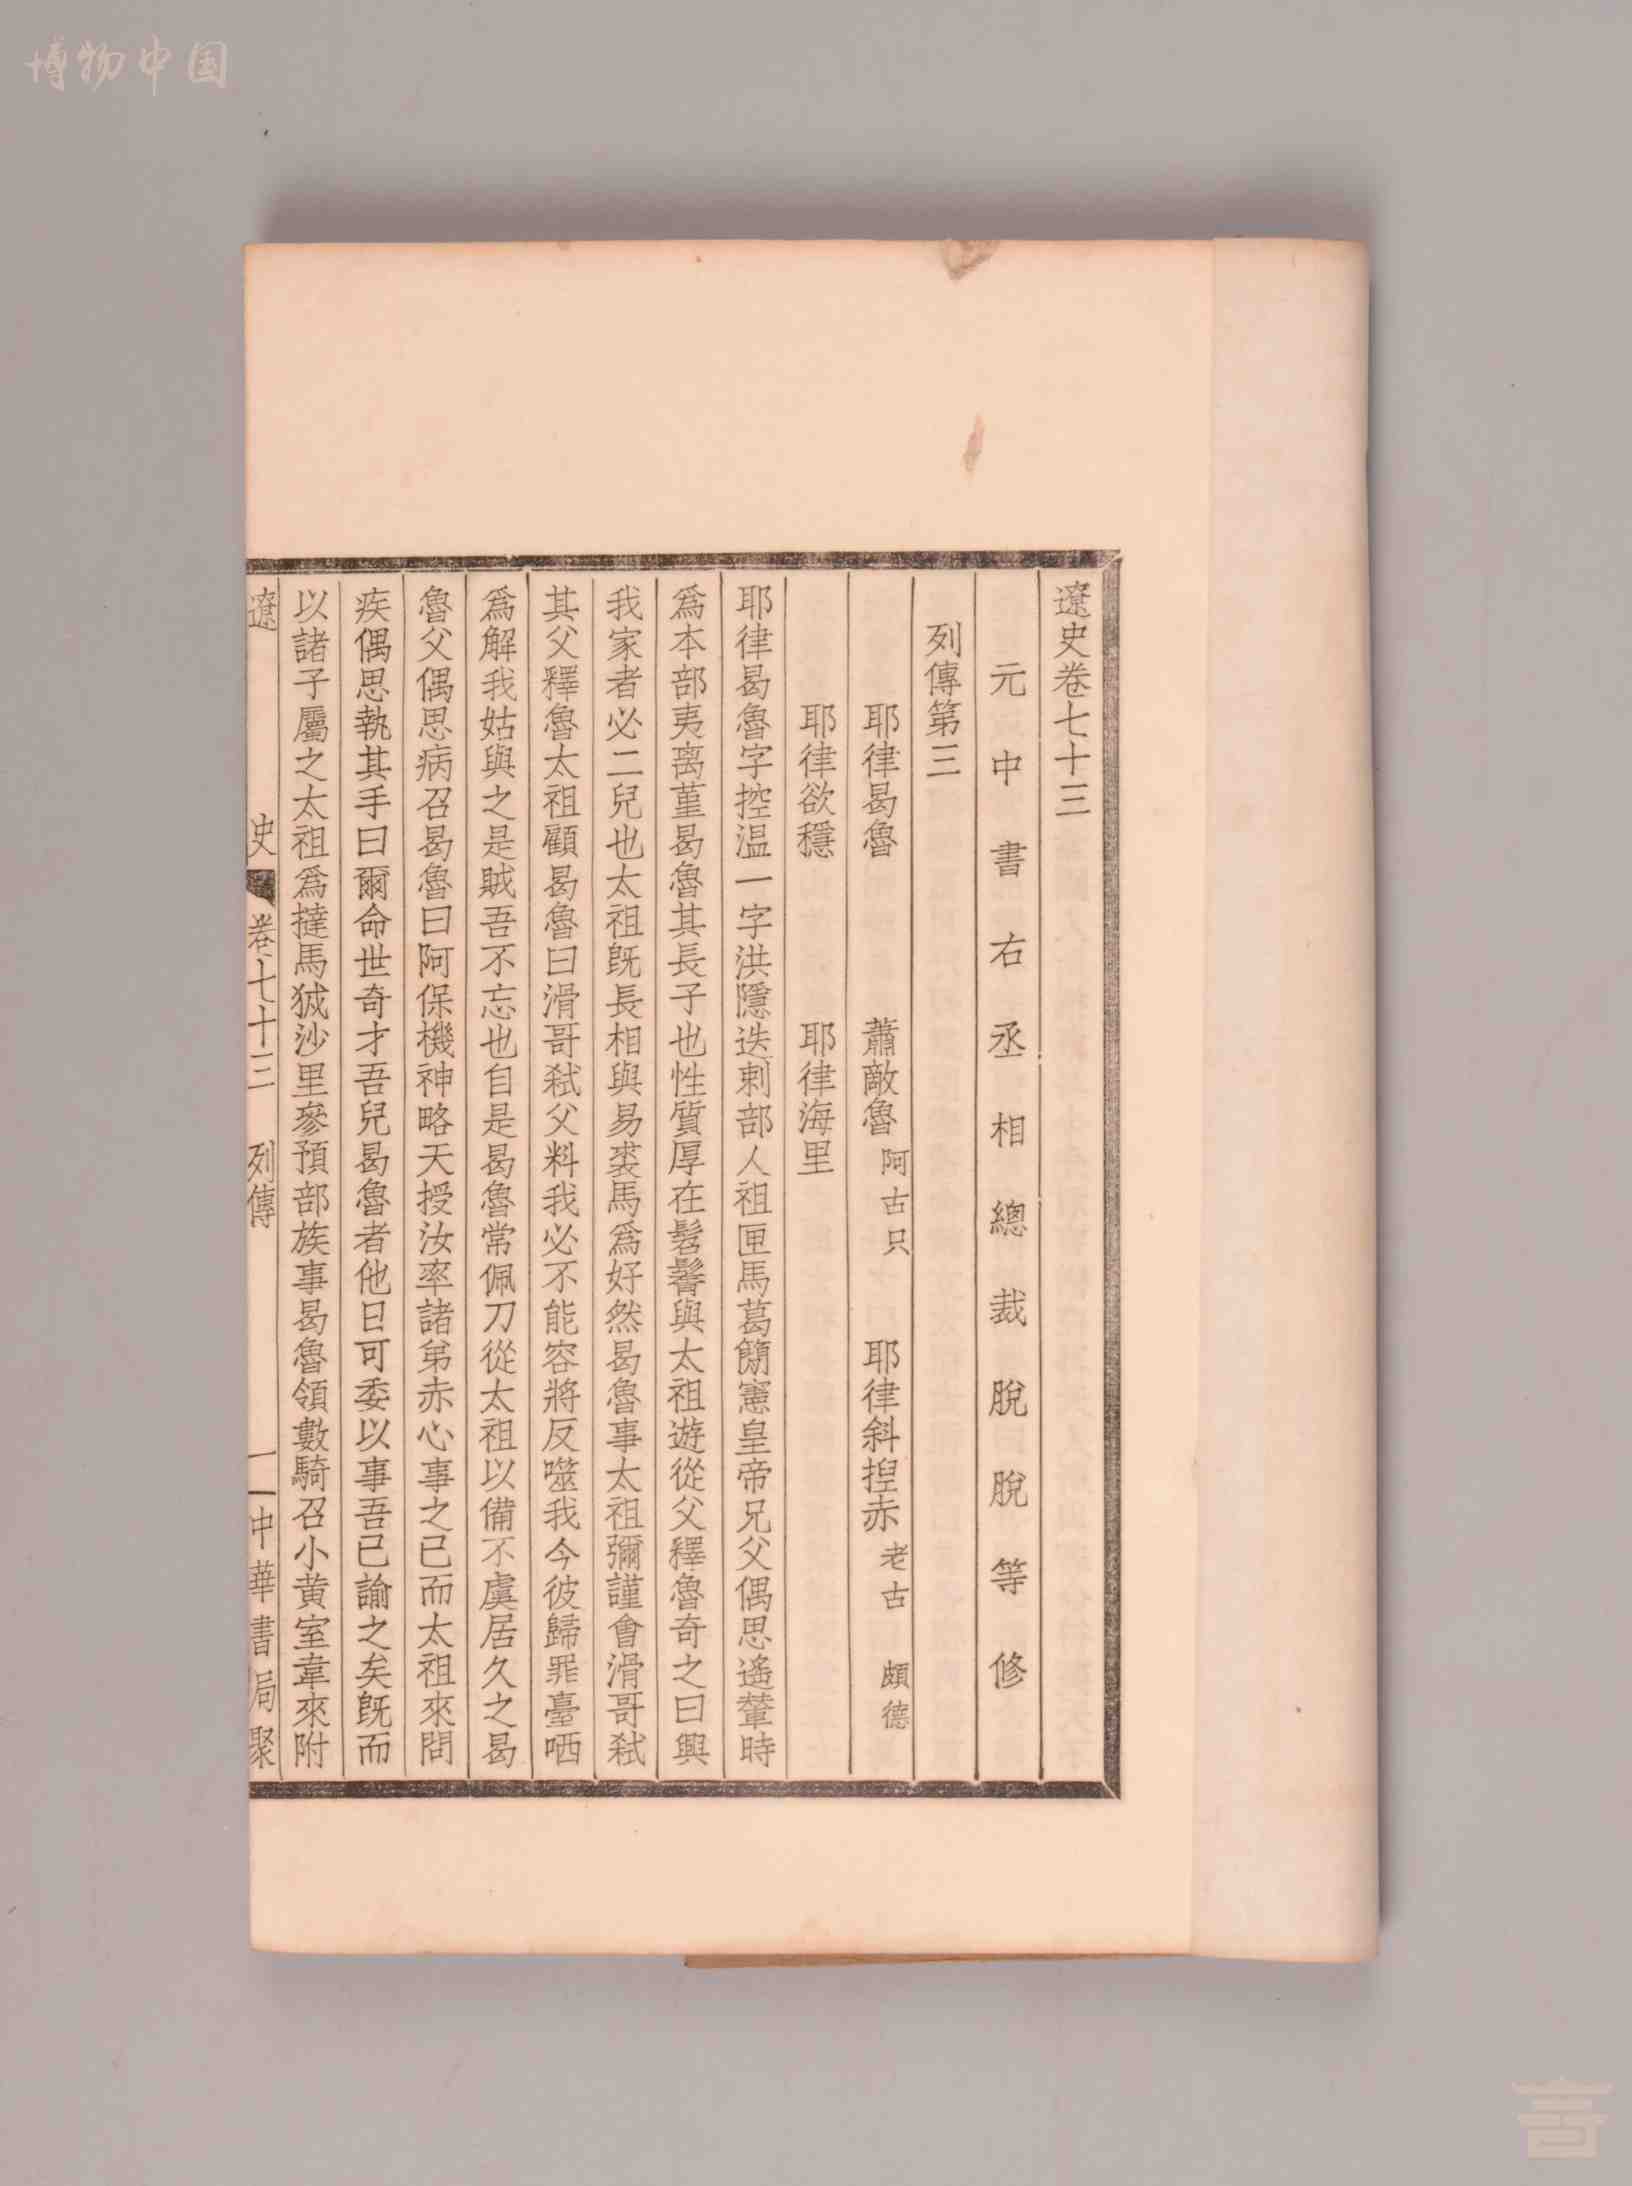 博物中国
遼史卷七十三
元中書右丞相總裁脫脫等修
列傳第三
耶律曷魯 蕭敵魯 阿古只 耶律斜揑赤 老古 頗德
耶律欲穩 耶律海里
耶律曷魯字控温一字洪隱迭剌部人祖匣馬葛簡憲皇帝兄父偶思遙輦時
爲本部夷离菫曷魯其長子也性質厚在髫鬌與太祖遊從父釋魯奇之曰興
我家者必二兒也太祖既長相與易裘馬爲好然曷魯事太祖彌謹會滑哥弒
其父釋魯太祖顧曷魯曰滑哥弒父料我必不能容將反噬我今彼歸罪臺哂
爲解我姑與之是賊吾不忘也自是曷魯常佩刀從太祖以備不虞居久之曷
魯父偶思病召曷魯曰阿保機神略天授汝率諸弟赤心事之已而太祖來問
疾偶思執其手曰爾命世奇才吾兒曷魯者他日可委以事吾已諭之矣既而
以諸子屬之太祖爲撻馬狘沙里參預部族事曷魯領數騎召小黃室韋來附
遼 史 卷七十三 列傳 一 中華書局聚